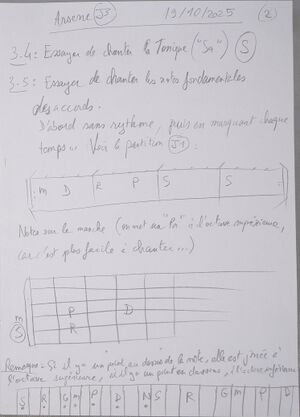 Arsene J3 19/10/2025 (2)
3.4: Essayer de chanter la Tonique ("Sa") (S)
3.5: Essayer de chanter les notes fondamentales
des accords.
D'abord sans rythme, puis en marquant chaque
temps. Voir la partition J1:
m D R P S S
Notes sur le manche (on met un "Pa" à l'octave supérieure,
car c'est plus facile à chanter...)
P D
m
(S) R
Remarque: Si il y a un point au dessus de la note, elle est jouée à
l'octave supérieure, si il y a un point en dessous, à l'octave inférieure
S R G m P D N S R G m P D